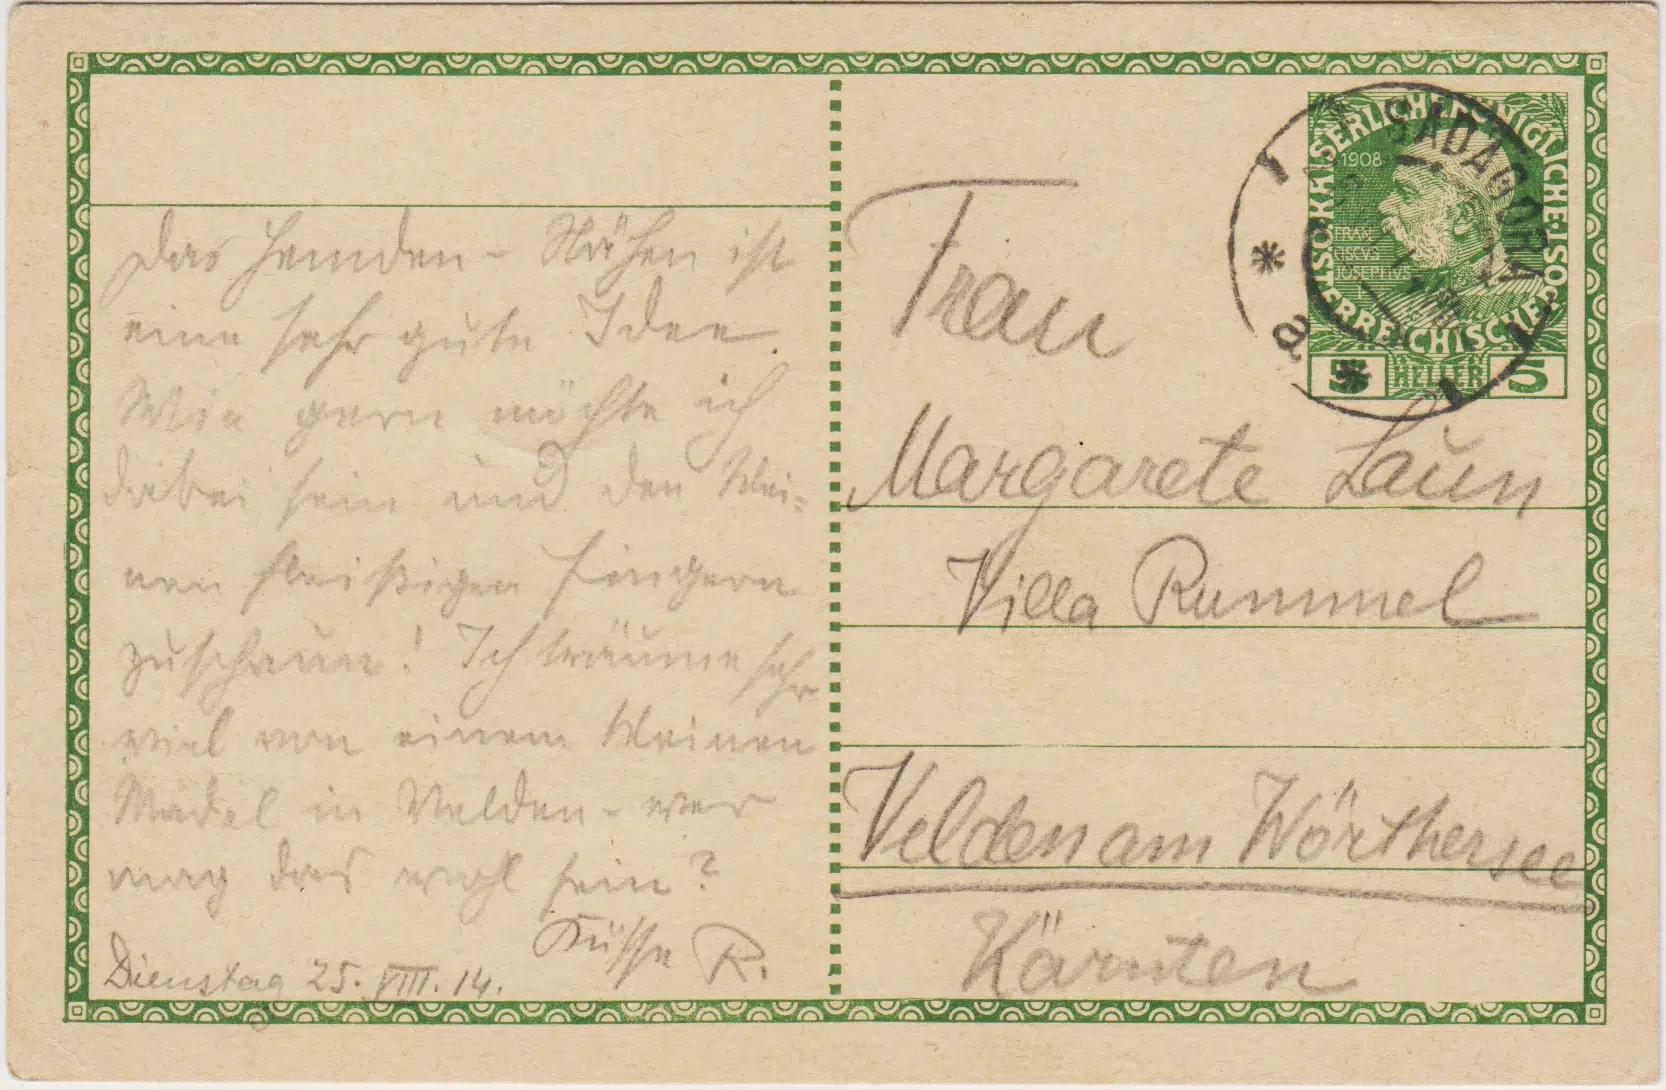 Das Hemden-Nähen ist
eine sehr gute Idee.
Wie gern möchte ich
dabei sein und den klei=
nen fleißigen Fingern
zuschaun! Ich träume sehr
viel von einem kleinen
Mädel in Velden - wer
mag das wohl sein?
Küsse R.
Dienstag 25. VIII. 14.
KAISERLICHE KÖNIGLICHE
ÖSTERREICHISCHE
1908
FRANC
ISCVS
IOSEPHVS
5 HELLER 5
SADAGORA
a
Frau
Margarete Laun
Villa Rummel
Velden am Wörthersee
Kärnten